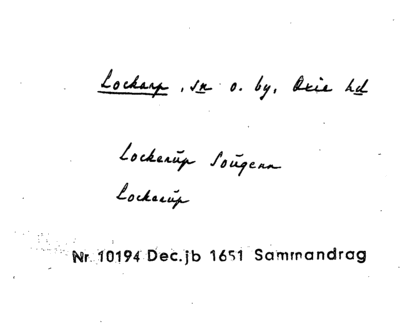 Lockarp, sn o. by, Oxie hd
Lockarüp Soügenn
Lockarüp
Nr 10194 Dec.jb 1651 Sammandrag